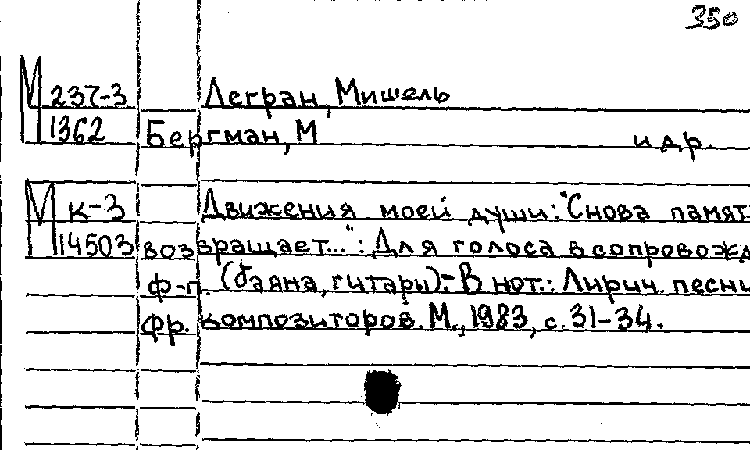 350
М 237-3 Легран, Мишель
1362 Бергман, М и др.
М к-3 Движения моей души: "Снова памят
14503 возвращает...": Для голоса в сопровожд
ф-п. (баяна, гитары).- В нот.: Лирич. песни
фр. композиторов. М., 1983, с. 31-34.